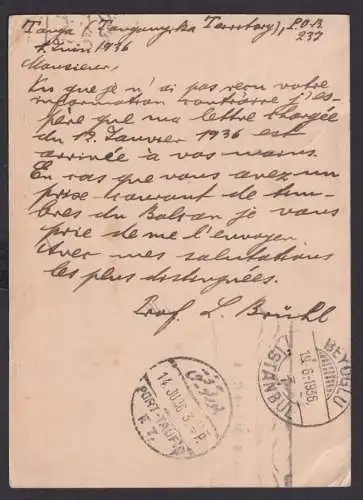 Tanga (Tanganyika Territory), P.O.B.
237
1. Juin 1936
Monsieur,
Vu que je n'ai pas reçu votre
information contraire j'es-
père que ma lettre chargée
du 19. Janvier 1936 est
arrivée à vos mains.
En cas que vous avez un
prix-courant de tim-
bres du Balcan je vous
prie de me l'envoyer
Avec mes salutations
les plus distinguées.
Prof. L. Brühl
BEYOĞLU
19-6-1936
ISTANBUL
14 JU 36
PORT-TAUFIQ